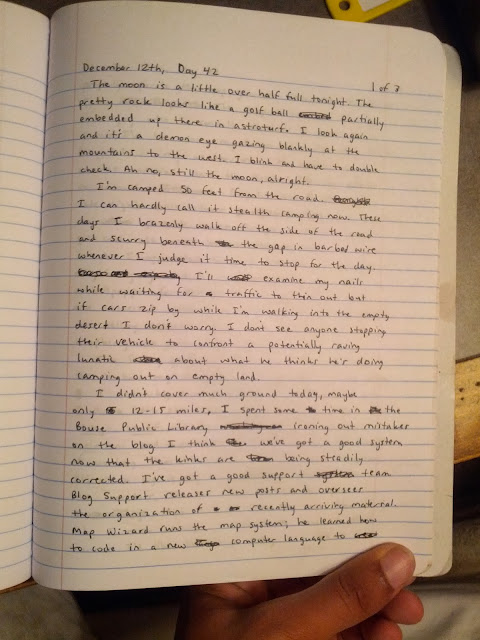 December 12th, Day 42
1 of 7
The moon is a little over half full tonight. The
pretty rock looks like a golf ball partially
embedded up there in astroturf. I look again
and it's a demon eye gazing blankly at the
mountains to the west. I blink and have to double
check. Ah no, still the moon, alright.
I'm camped 50 feet from the road.
I can hardly call it stealth camping now. These
days I brazenly walk off the side of the road
and scurry beneath the gap in barbed wire
whenever I judge it time to stop for the day.
I'll examine my nails
while waiting for traffic to thin out but
if cars zip by while I'm walking into the empty
desert I don't worry. I don't see anyone stopping
their vehicle to confront a potentially raving
lunatic about what he thinks he's doing
camping out on empty land.
I didn't cover much ground today, maybe
only 12-15 miles, I spent some time in the
Bouse Public Library ironing out mistakes
on the blog. I think we've got a good system
now that the kinks are being steadily
corrected. I've got a good support team
Blog Support releases new posts and oversees
the organization of recently arriving material.
Map Wizard runs the map system; he learned how
to code in a new computer language to